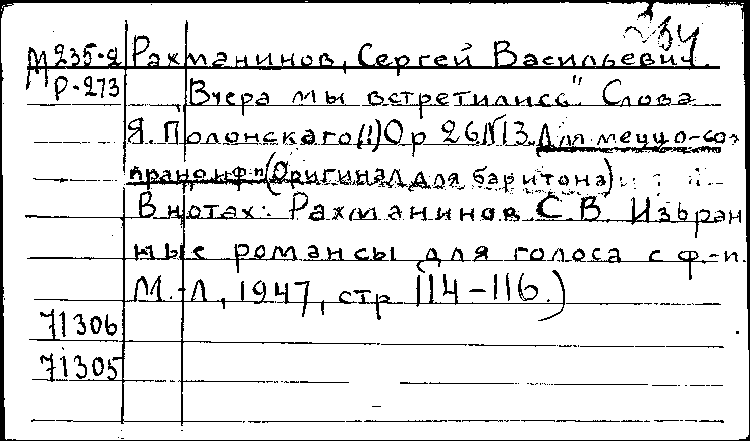 264
М 235-2 Рахманинов, Сергей Васильевич.
Р-273 „Вчера мы встретились". Слова
Я. Полонскаго(!) Ор 26 N13. Для меццо-соп
прано и ф-п (Оригинал для баритона)
В нотах: Рахманинов С.В. Избран
ные романсы для голоса с ф.-п.
М.-Л, 1947, стр 114-116.)
71306
71305